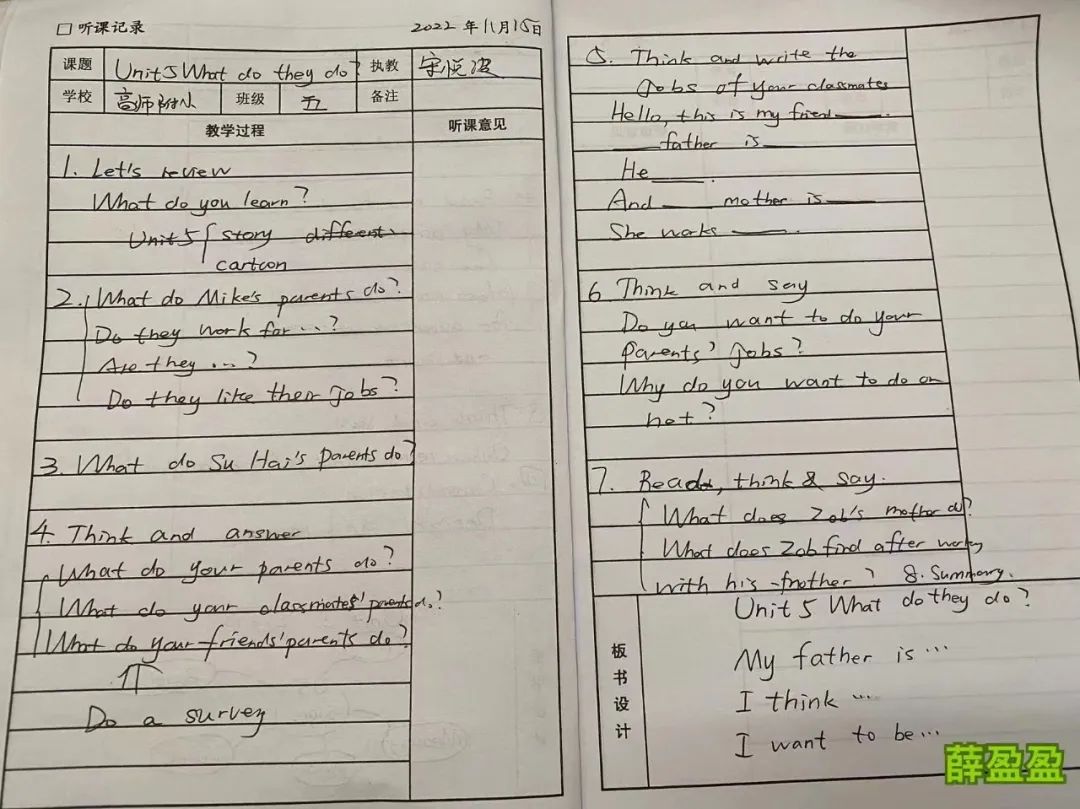 □ 听课记录 2022 年 11 月 15 日
课题 Unit 5 What do they do? 执教 宋悦波
学校 高师附小 班级 五 备注
教学过程 听课意见
1. Let's review
What do you learn?
Unit 5 { story different
cartoon
2. What do Mike's parents do?
Do they work for...?
Are they ...?
Do they like their jobs?
3. What do Su Hai's parents do?
4. Think and answer
What do your parents do?
What do your classmates' parents do?
What do your friends' parents do?
⇑
Do a survey
5. Think and write the
jobs of your classmates
Hello, this is my friend ____.
____ father is ____
He ____.
And ____ mother is ____
She works ____.
6 Think and say
Do you want to do your
parents' jobs?
Why do you want to do or
not?
7. Read, think & say.
What does Zob's mother do?
What does Zob find after working
with his mother? 8. Summary.
板书设计
Unit 5 What do they do?
My father is ...
I think ...
I want to be...
薛盈盈